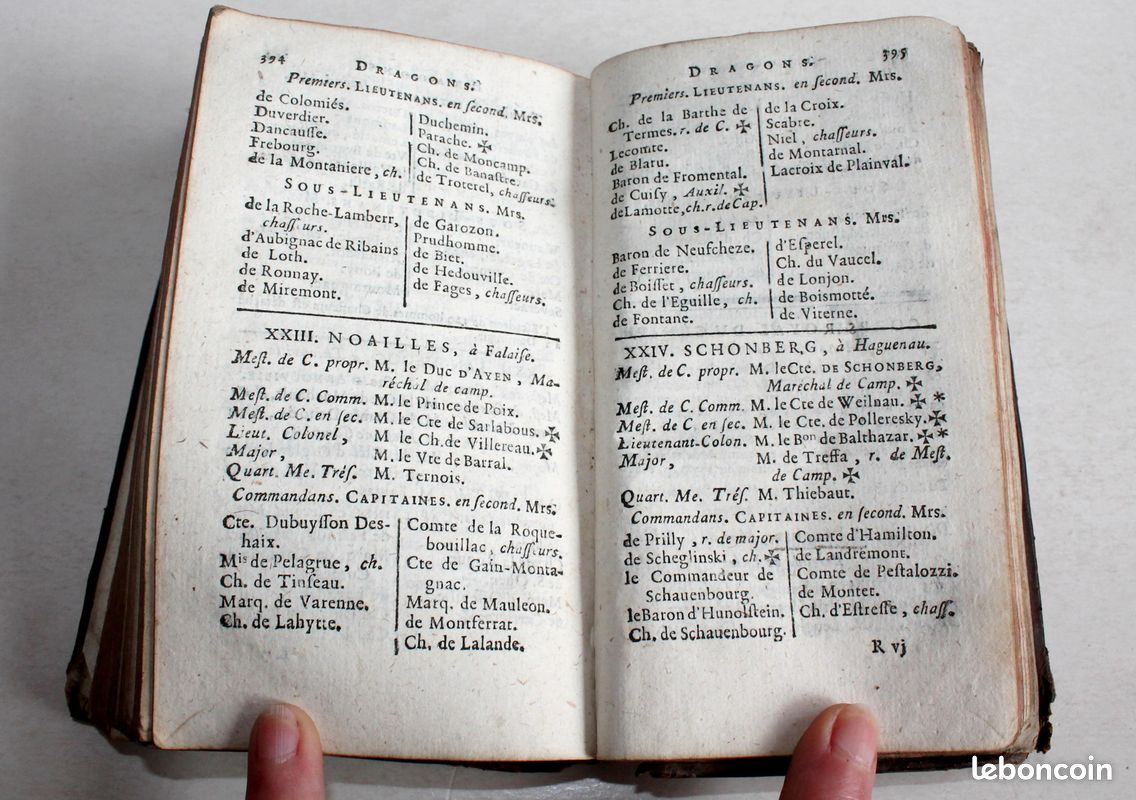 394
DRAGONS.
Premiers. LIEUTENANS. en ſecond. Mrs.
de Colomiés.
Duverdier.
Dancauſſe.
Frebourg.
de la Montaniere, ch.
Duchemin.
Parache. ✠
Ch. de Moncamp.
Ch. de Banaſtre.
de Troterel, chaſſeurs.
SOUS-LIEUTENANS. Mrs.
de la Roche-Lambert,
chaſſeurs.
d'Aubignac de Ribains
de Loth.
de Ronnay.
de Miremont.
de Garozon.
Prudhomme.
de Biet.
de Hedouville.
de Fages, chaſſeurs.
XXIII. NOAILLES, à Falaiſe.
Meſt. de C. propr. M. le Duc D'AYEN, Ma-
réchal de camp.
Meſt. de C. Comm. M. le Prince de Poix.
Meſt. de C. en ſec. M. le Cte de Sarlabous. ✠
Lieut. Colonel, M. le Ch. de Villereau. ✠
Major, M. le Vte de Barral.
Quart. Me. Tréſ. M. Ternois.
Commandans. CAPITAINES. en ſecond. Mrs.
Cte. Dubuyſſon Des-
haix.
Mis de Pelagrue, ch.
Ch. de Tinſeau.
Marq. de Varenne.
Ch. de Lahytte.
Comte de la Roque-
bouillac, chaſſeurs.
Cte de Gain-Monta-
gnac.
Marq. de Mauleon.
de Montferrat.
Ch. de Lalande.
395
DRAGONS.
Premiers. LIEUTENANS. en ſecond. Mrs.
Ch. de la Barthe de
Termes. r. de C. ✠
Lecomte.
de Blaru.
Baron de Fromental.
de Cuiſy, Auxil. ✠
de Lamotte, ch. r. de Cap.
de la Croix.
Scabre.
Niel, chaſſeurs.
de Montarnal.
Lacroix de Plainval.
SOUS-LIEUTENANS. Mrs.
Baron de Neufcheze.
de Ferriere.
de Boiſſet, chaſſeurs.
Ch. de l'Eguille, ch.
de Fontane.
d'Eſperel.
Ch. du Vaucel.
de Lonjon.
de Boismotté.
de Viterne.
XXIV. SCHONBERG, à Haguenau.
Meſt. de C. propr. M. le Cte. DE SCHONBERG,
Maréchal de Camp. ✠
Meſt. de C. Comm. M. le Cte de Weilnau. ✠ *
Meſt. de C en ſec. M. le Cte. de Polleresky. ✠
Lieutenant-Colon. M. le Bon de Balthazar. ✠ *
Major, M. de Treffa, r. de Meſt.
de Camp. ✠
Quart. Me. Tréſ. M. Thiebaut.
Commandans. CAPITAINES. en ſecond. Mrs.
de Prilly, r. de major.
de Scheglinski, ch. ✠
le Commandeur de
Schauenbourg.
le Baron d'Hunolſtein.
Ch. de Schauenbourg.
Comte d'Hamilton.
de Landremont.
Comte de Peſtalozzi.
de Montet.
Ch. d'Eſtreſſe, chaſſ.
R vj
leboncoin